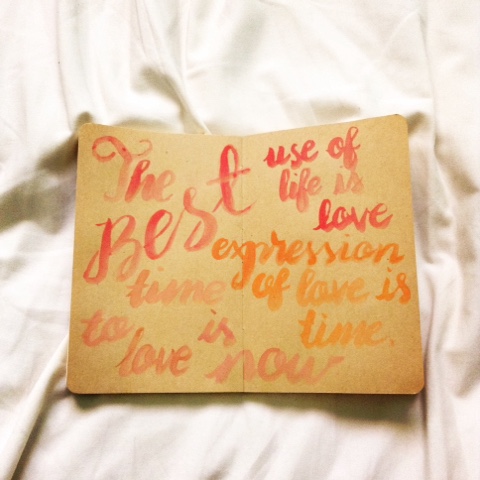 The
Best
use of
life is
love
expression
of love is
time.
time
to love
is now